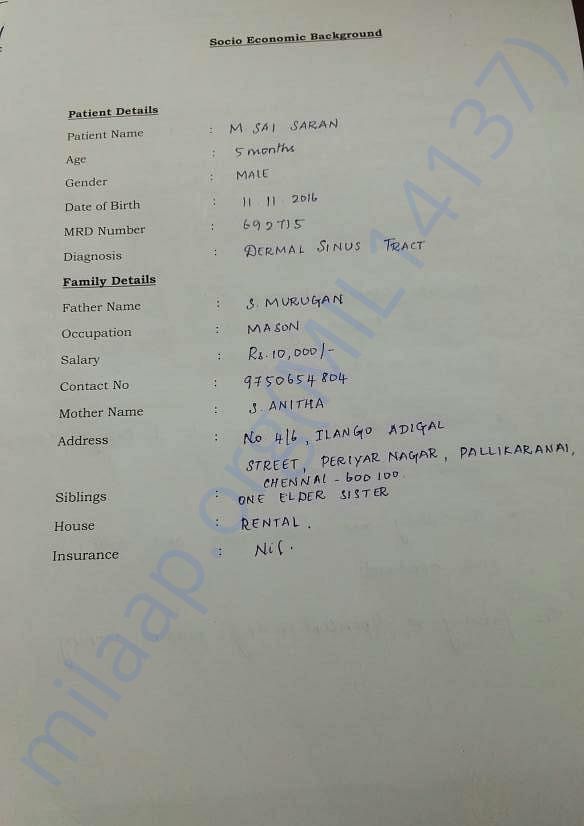 Socio Economic Background
Patient Details
Patient Name : M SAI SARAN
Age : 5 months
Gender : MALE
Date of Birth : 11. 11. 2016
MRD Number : 692715
Diagnosis : DERMAL SINUS TRACT
Family Details
Father Name : S. MURUGAN
Occupation : MASON
Salary : Rs. 10,000/-
Contact No : 9750654804
Mother Name : S. ANITHA
Address : No 4/6, ILANGO ADIGAL
STREET, PERIYAR NAGAR, PALLIKARANAI,
CHENNAI - 600 100.
Siblings : ONE ELDER SISTER
House : RENTAL.
Insurance : Nil.
milaap.org(MIL14137)